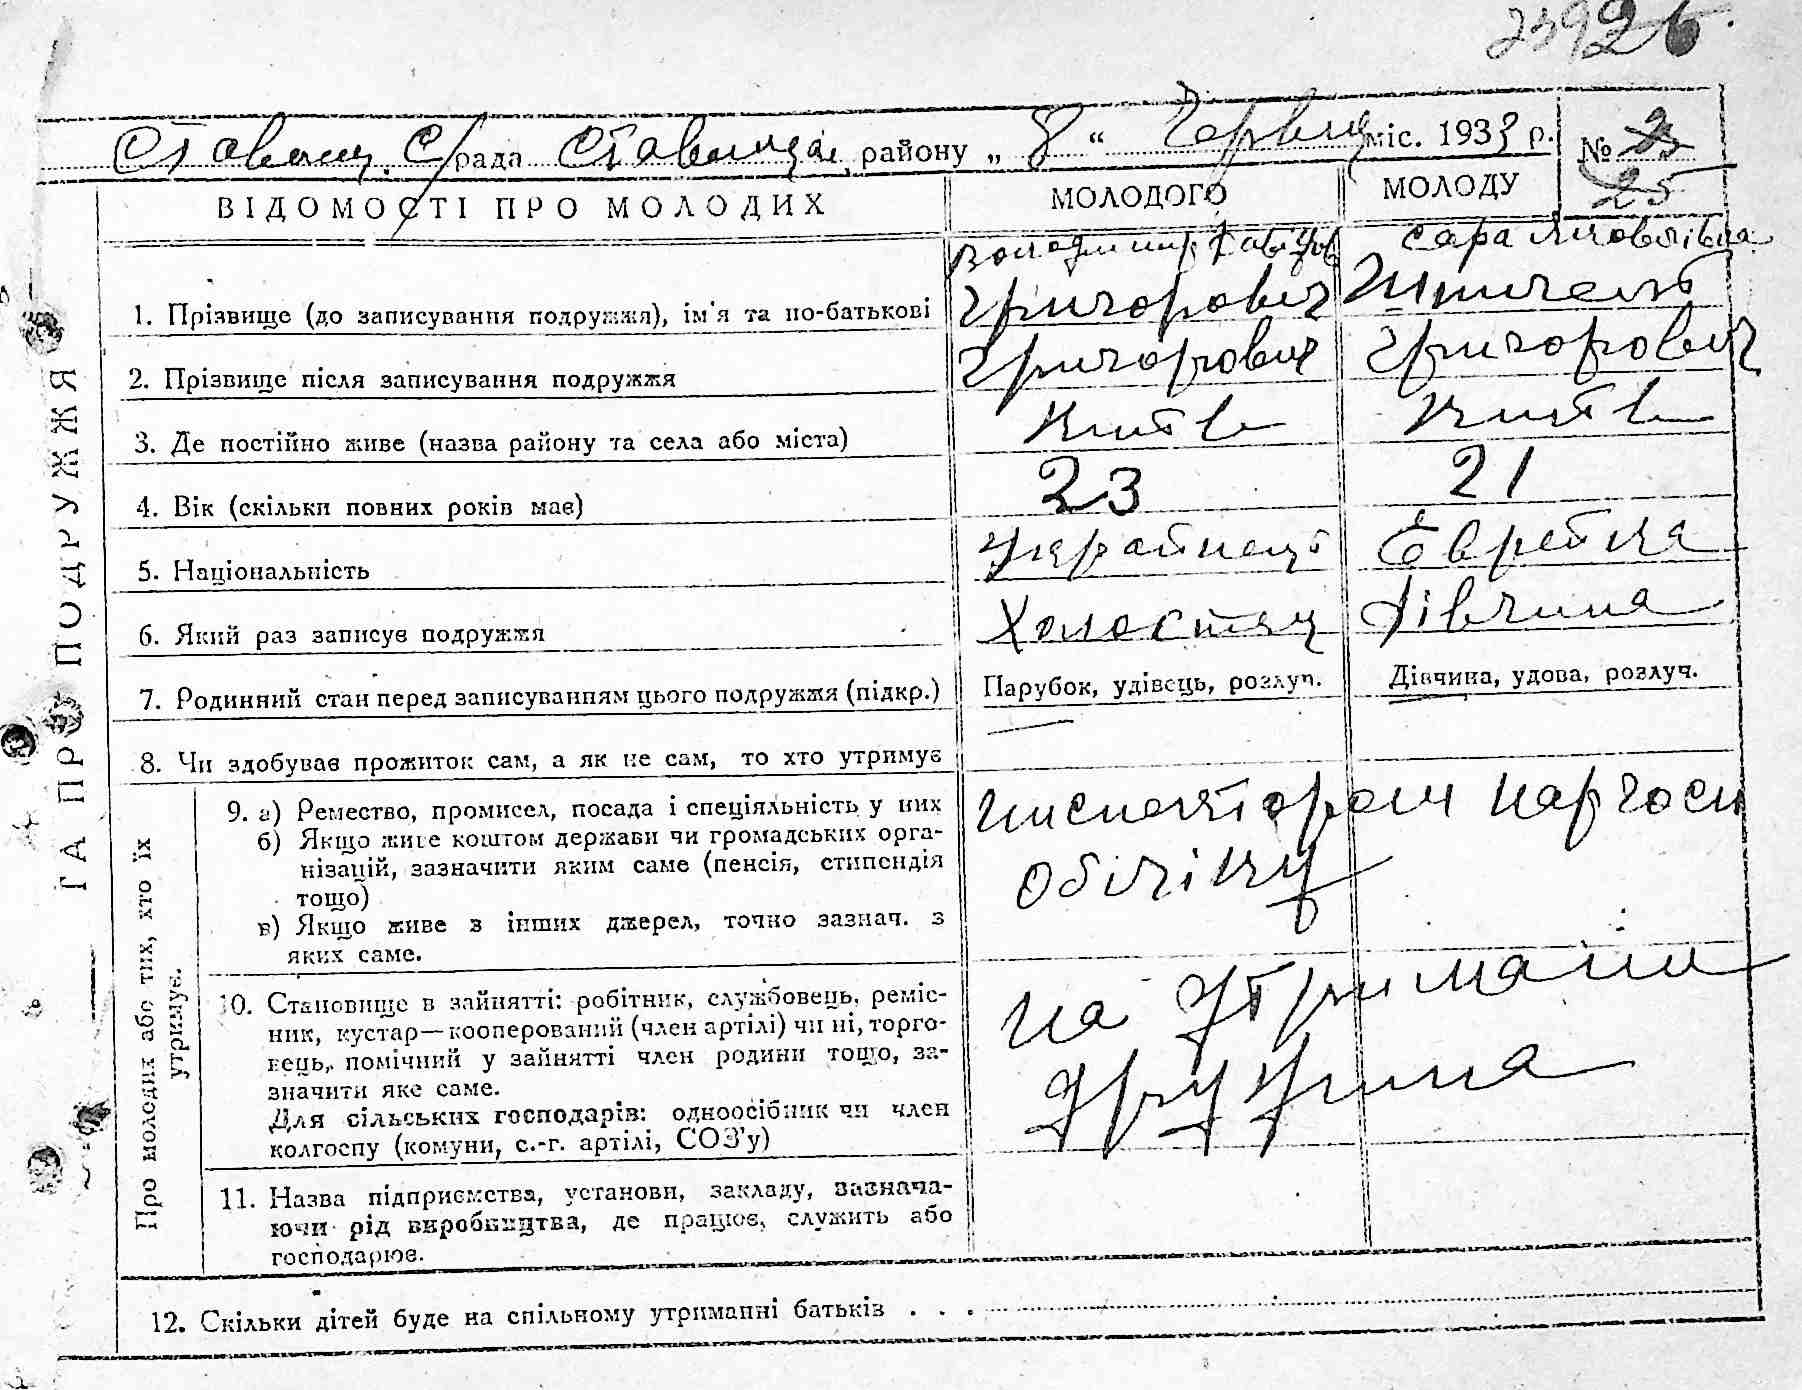 2392б.
Ставищ. С/рада Ставищан. району „ 8 “ Червця міс. 1933 р. № 23
25
ВІДОМОСТІ ПРО МОЛОДИХ МОЛОДОГО МОЛОДУ
Володимир Сара
1. Прізвище (до записування подружжя), ім'я та по-батькові Григорович
2. Прізвище після записування подружжя Григорович Григорович
3. Де постійно живе (назва району та села або міста) Київ Київ
4. Вік (скільки повних років має) 23 21
5. Національність Українець Єврейка
6. Який раз записує подружжя Холостяк Дівчина
7. Родинний стан перед записуванням цього подружжя (підкр.) Парубок, удівець, розлуч. Дівчина, удова, розлуч.
8. Чи здобував прожиток сам, а як не сам, то хто утримує
Про молодих або тих, хто їх утримує.
9. а) Ремество, промисел, посада і спеціяльність у них Инспектором нархос
б) Якщо живе коштом держави чи громадських орга-
нізацій, зазначити яким саме (пенсія, стипендія обліку
тощо)
в) Якщо живе з інших джерел, точно зазнач. з
яких саме.
10. Становище в зайнятті: робітник, службовець, реміс- на утримані
ник, кустар—кооперований (член артілі) чи ні, торго-
вець, помічний у зайнятті член родини тощо, за- дружина
значити яке саме.
Для сільських господарів: одноосібник чи член
колгоспу (комуни, с.-г. артілі, СОЗ'у)
11. Назва підприємства, установи, закладу, зазнача-
ючи рід виробництва, де працює, служить або
господарює.
12. Скільки дітей буде на спільному утриманні батьків . . .
ТА ПРО ПОДРУЖЖЯ